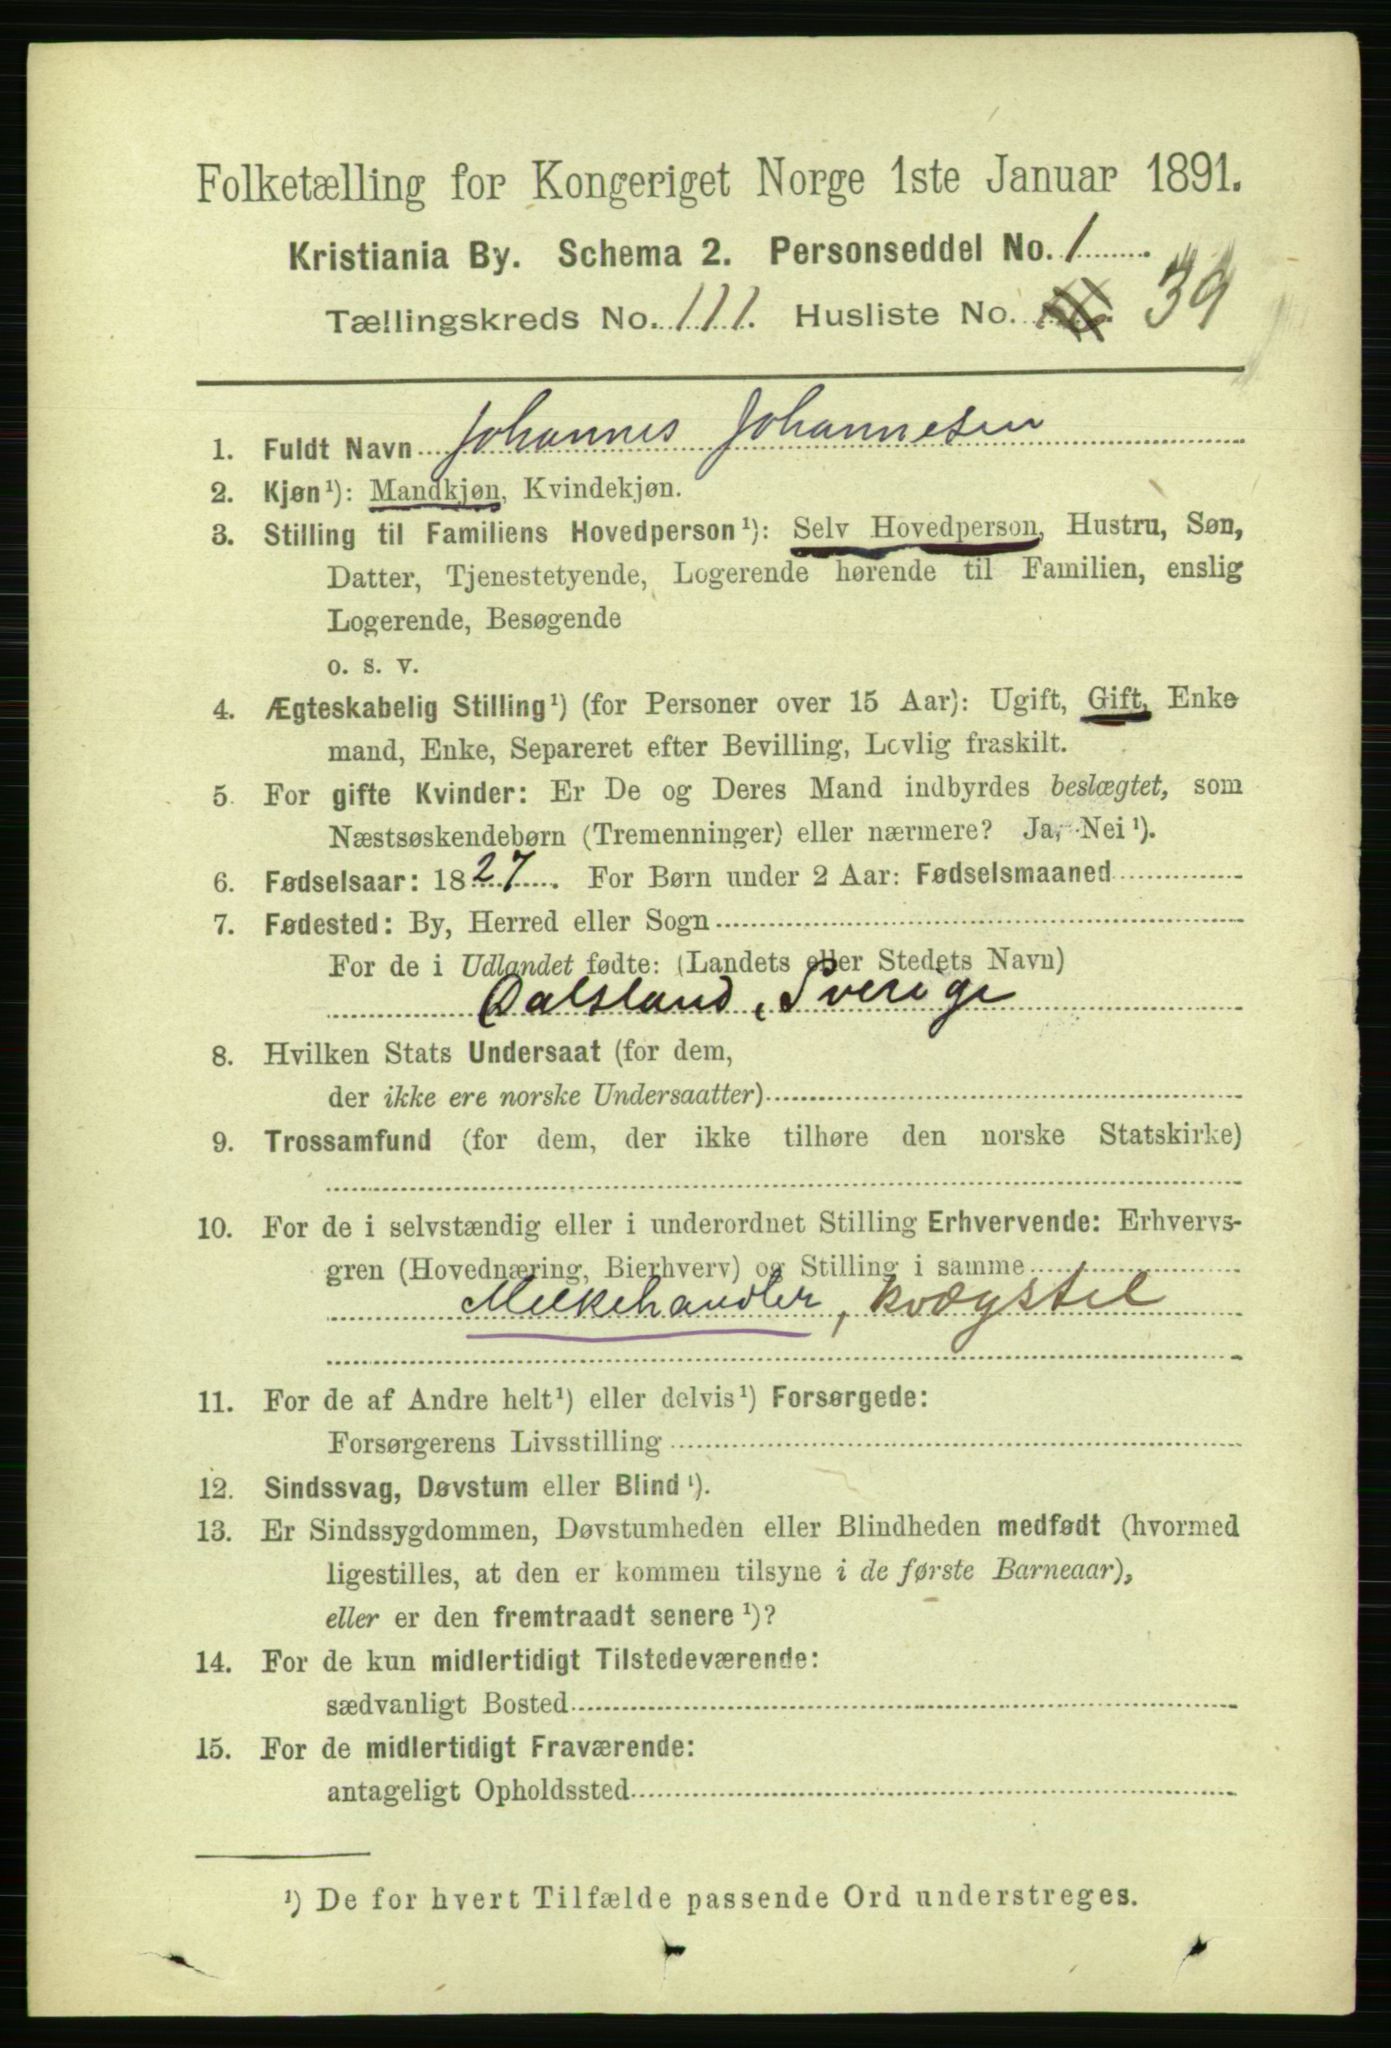 Folketælling for Kongeriget Norge 1ste Januar 1891.
Kristiania By. Schema 2. Personseddel No. 1
Tællingskreds No. 111. Husliste No. 39
1. Fuldt Navn Johannes Johannesen
2. Kjøn ¹): Mandkjøn, Kvindekjøn.
3. Stilling til Familiens Hovedperson ¹): Selv Hovedperson, Hustru, Søn,
Datter, Tjenestetyende, Logerende hørende til Familien, enslig
Logerende, Besøgende
o. s. v.
4. Ægteskabelig Stilling ¹) (for Personer over 15 Aar): Ugift, Gift, Enke
mand, Enke, Separeret efter Bevilling, Lovlig fraskilt.
5. For gifte Kvinder: Er De og Deres Mand indbyrdes beslægtet, som
Næstsøskendebørn (Tremenninger) eller nærmere? Ja, Nei ¹).
6. Fødselsaar: 1827. For Børn under 2 Aar: Fødselsmaaned
7. Fødested: By, Herred eller Sogn
For de i Udlandet fødte: (Landets eller Stedets Navn)
Dalsland, Sverige
8. Hvilken Stats Undersaat (for dem,
der ikke ere norske Undersaatter)
9. Trossamfund (for dem, der ikke tilhøre den norske Statskirke)
10. For de i selvstændig eller i underordnet Stilling Erhvervende: Erhvervs-
gren (Hovednæring, Bierhverv) og Stilling i samme
Melkehandler, kvægstel
11. For de af Andre helt ¹) eller delvis ¹) Forsørgede:
Forsørgerens Livsstilling
12. Sindssvag, Døvstum eller Blind ¹).
13. Er Sindssygdommen, Døvstumheden eller Blindheden medfødt (hvormed
ligestilles, at den er kommen tilsyne i de første Barneaar),
eller er den fremtraadt senere ¹)?
14. For de kun midlertidigt Tilstedeværende:
sædvanligt Bosted
15. For de midlertidigt Fraværende:
antageligt Opholdssted
¹) De for hvert Tilfælde passende Ord understreges.